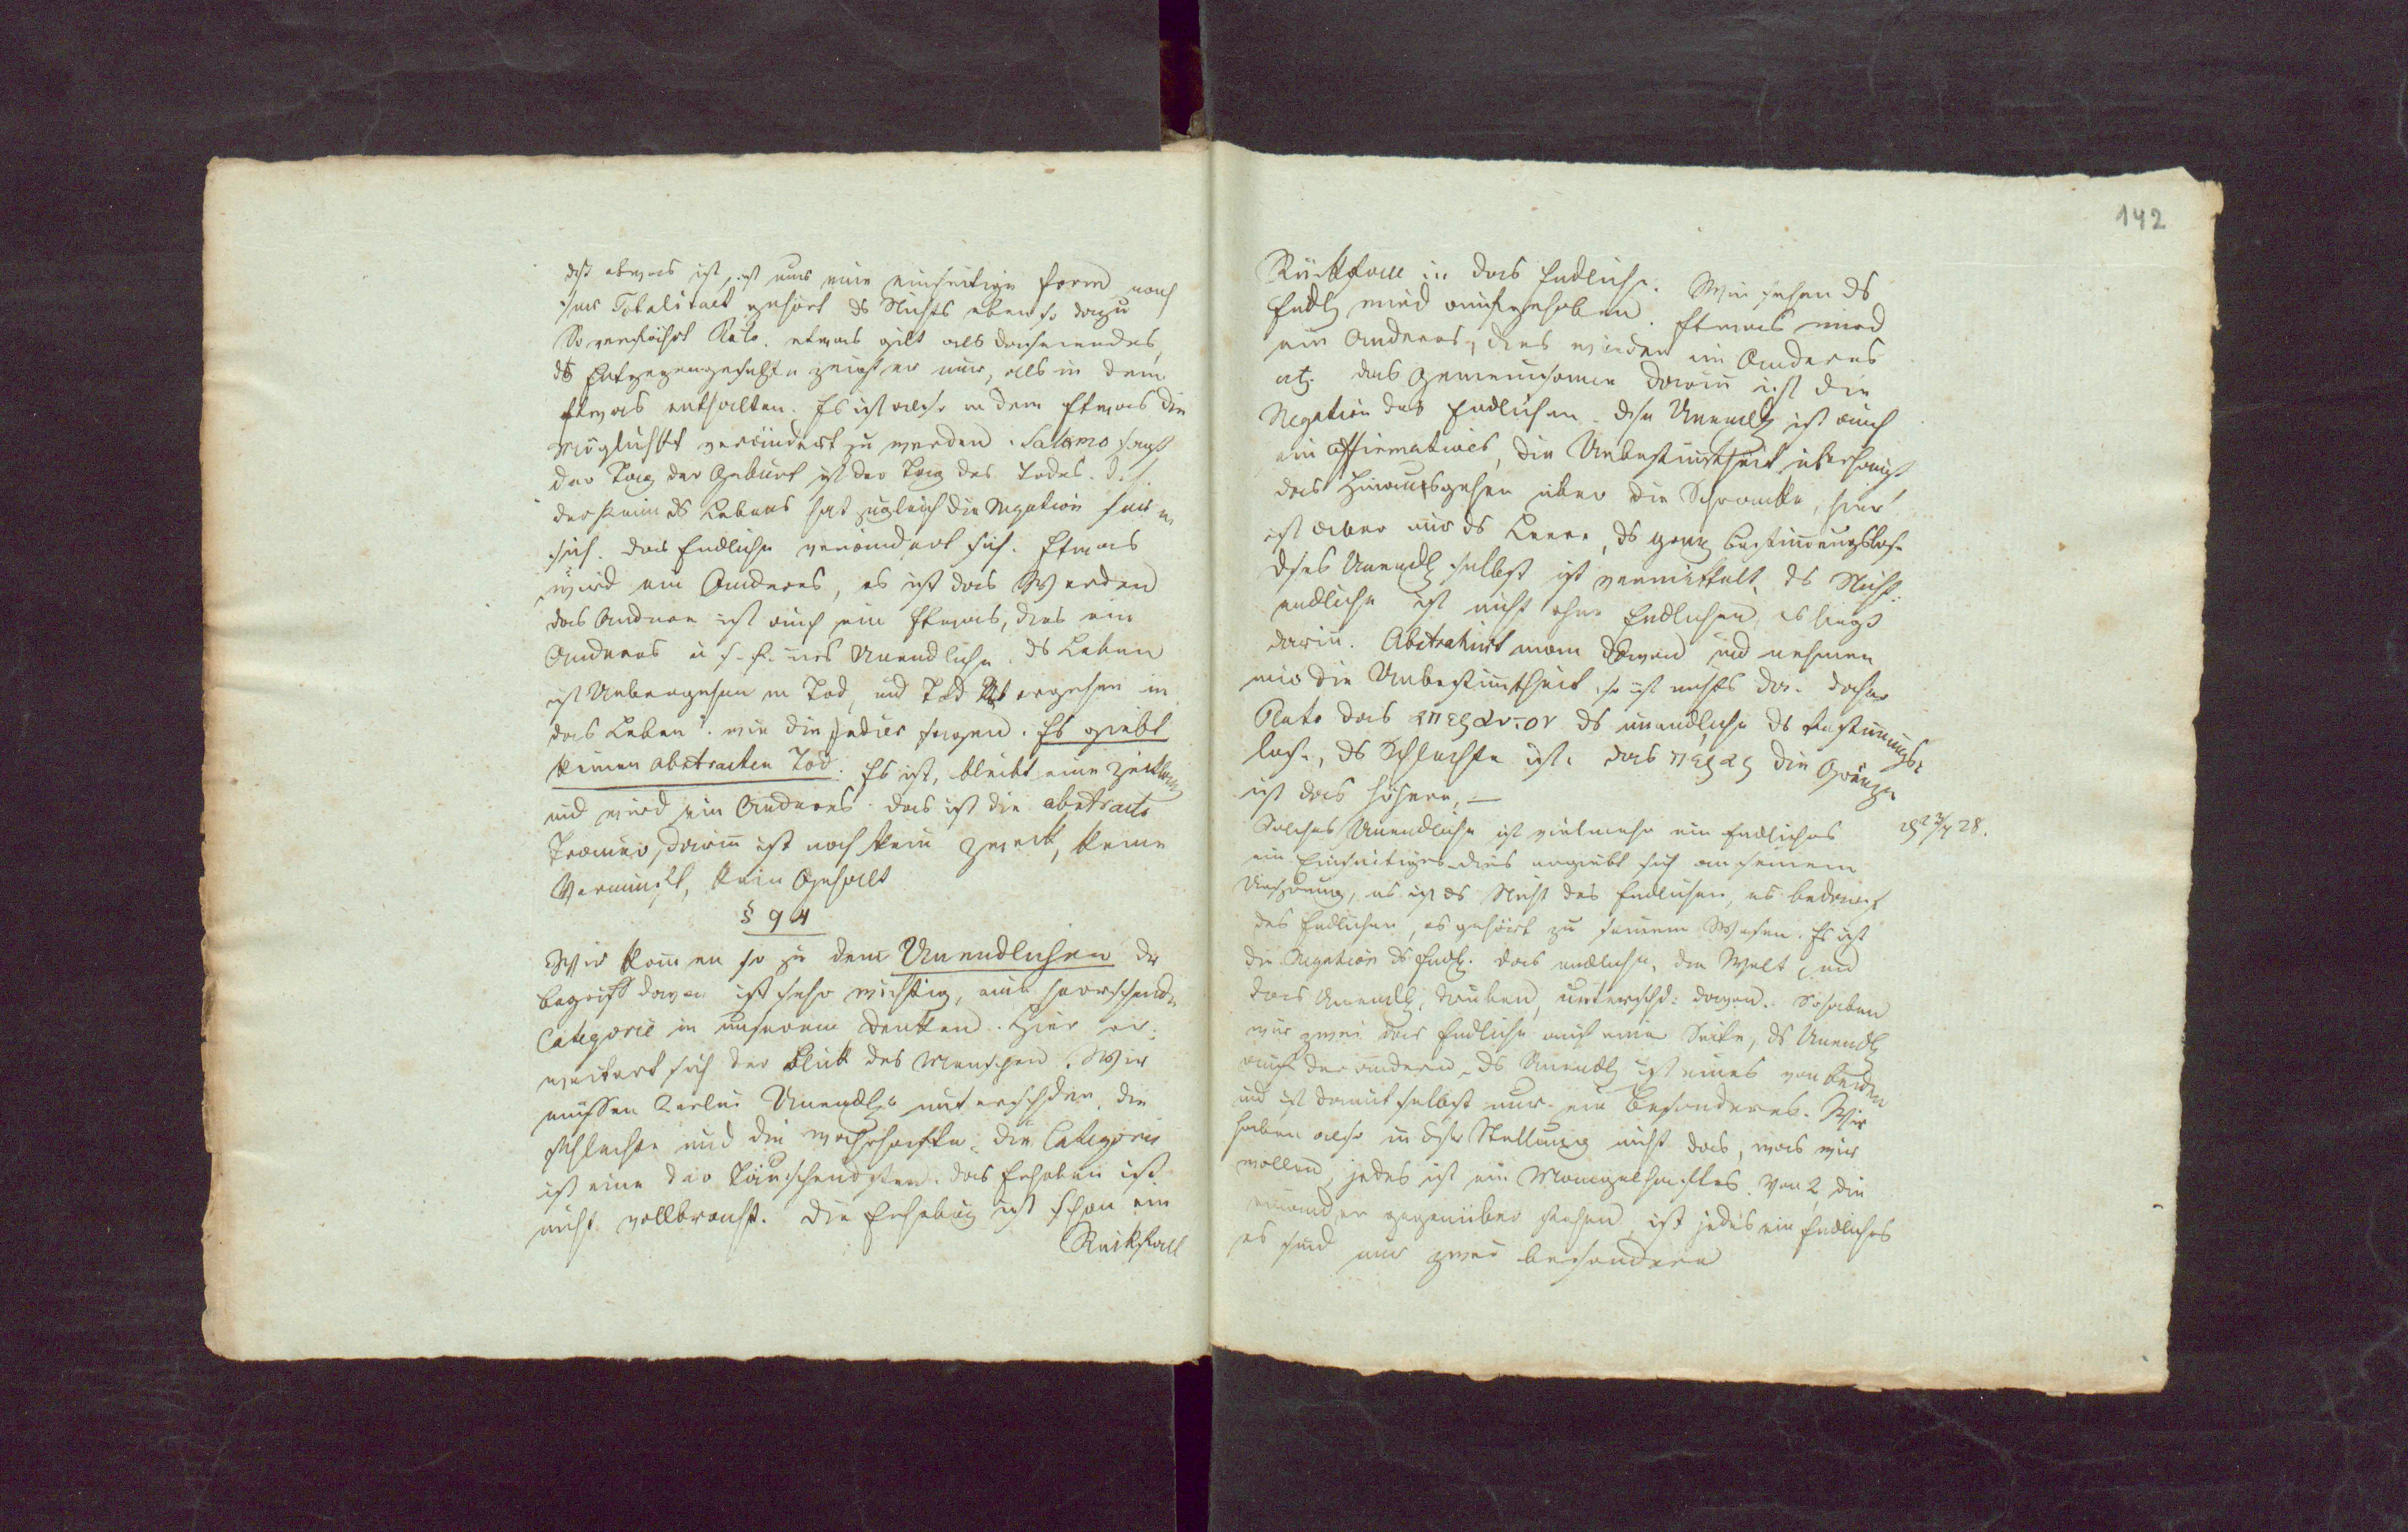 dß etwas ist, ist nur eine einseitige Form nach
zur Totalitaet gehört ds Nichts eben so dazu
So verfährt Plato. etwas gilt als daseiendes,
ds Entgegengesetzte zeigt er nur, als in dem
Etwas enthalten. Es ist also in dem Etwas die
Möglichkt verändert zu werden. Salomo sagt
der Tag der Geburt ist der Tag des Todes. d. h.
der Keim ds Lebens hat zugleich die Negation in
sich. das Endliche verändert sich. Etwas
wird ein Anderes, es ist das Werden
das Andere ist auch ein Etwas, dies ein
Anderes u s. f. ins Unendliche. ds Leben
ist Uebergehen in Tod, und Tod Uebergehen in
das Leben. wie die Indier sagen. Es giebt
keinen abstracten Tod. Es ist, bleibt eine Zeitlang
und wird ein Anderes. das ist die abstracte
Trauer, darin ist noch kein Zweck, keine
Vernunft, kein Gehalt
§ 94
Wir kommen so zu dem Unendlichen der
Begriff davon ist sehr wichtig, eine herrschende
Categorie in unserem Denken. Hier er-
weitert sich der Blick des Menschen. Wir
müssen 2erlei Unendl. unterschden, die
schlechte und die wahrhafte. die Categorie
ist eine der täuschendsten. das Erhaben ist
nicht vollbracht. die Erhebung ist schon ein
Rückfall
142
Rückfall in das Endliche. Wir sehen ds
Endl wird aufgehoben. Etwas wird
ein Anderes, dies wieder ein Anderes
etc. das Gemeinsame darin ist die
Negation des Endlichen. dse Unendl ist auch
ein Affirmatives, die Unbestimtheit überhaupt
das Hinausgehen über die Schranke, hier
ist aber nur ds Leere, ds ganz Bestimungslose
dses Unendl selbst ist vermittelt, ds Nicht-
endliche ist nicht ohne Endlichen, es liegt
darin. Abstrahirt man davon und nehmen
wir die Unbestimtheit, so ist nichts da. daher
Plato das απεραντον ds unendliche ds Bestimungs-
lose, ds Schlechte ist. das περας die Gränze
ist das höhere, —
Solches Unendliche ist vielmehr ein Endliches
28.
ein Einseitiges. dies ergiebt sich aus seinem
Ursprung, es ist ds Nicht des Endlichen, es bedarf
des Endlichen, es gehört zu seinem Wesen. Es ist
die Negation ds Endl. das endliche, die Welt und
das Unendl, drüben, unterschd: davon. So haben
wir zwei das Endliche auf eine Seite, ds Unendl
auf der andern. ds Unendl ist eines von beiden
und ist damit selbst nur ein Besonderes. Wir
haben also in dser Stellung nicht das, was wir
wollen, jedes ist ein Mangelhaftes. Von 2, die
einander gegenüber stehen, ist jedes ein Endliches
es sind nur zwei besondere